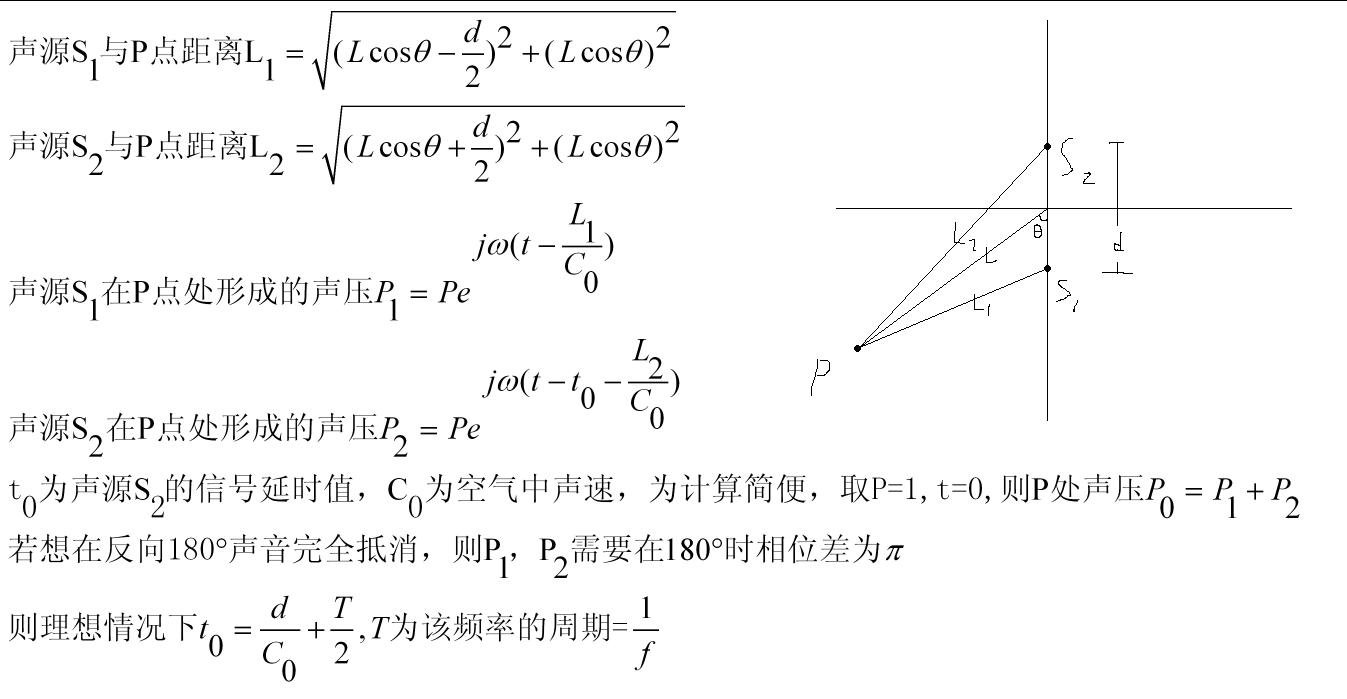 声源S₁与P点距离L₁ = √((Lcosθ − d/2)² + (Lcosθ)²)
声源S₂与P点距离L₂ = √((Lcosθ + d/2)² + (Lcosθ)²)
声源S₁在P点处形成的声压P₁ = Pe^(jω(t − L₁/C₀))
声源S₂在P点处形成的声压P₂ = Pe^(jω(t − t₀ − L₂/C₀))
t₀为声源S₂的信号延时值，C₀为空气中声速，为计算简便，取P=1,t=0,则P处声压P₀ = P₁ + P₂
若想在反向180°声音完全抵消，则P₁，P₂需要在180°时相位差为π
则理想情况下t₀ = d/C₀ + T/2,T为该频率的周期=1/f
S₂
d
θ
L₂
L
S₁
L₁
P